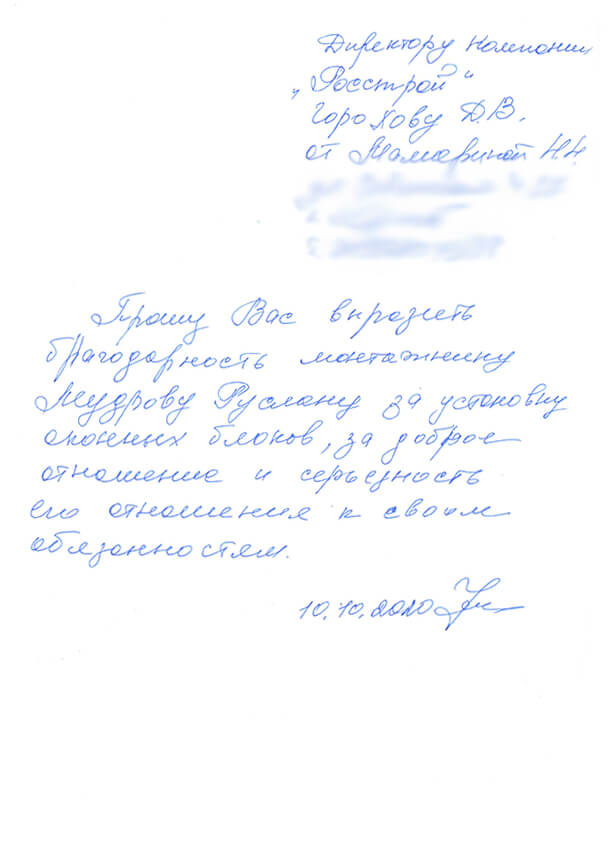 Директору Компании
"Росстрой"
Горохову Д.В.
от Мамариной Н.Н.
Прошу Вас выразить
благодарность монтажнику
Мудрову Руслану за установку
оконных блоков, за доброе
отношение и серьезность
его отношения к своим
обязанностям.
10.10.2020